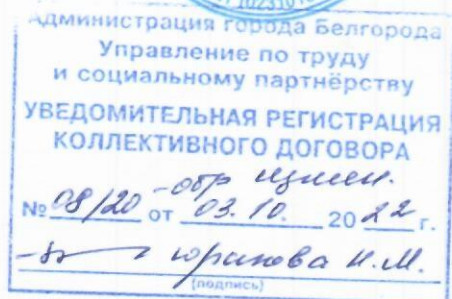 102310
Администрация города Белгорода
Управление по труду
и социальному партнёрству
УВЕДОМИТЕЛЬНАЯ РЕГИСТРАЦИЯ
КОЛЛЕКТИВНОГО ДОГОВОРА
№ 08/20 -обр измен. от 03.10. 2022 г.
Юракова Н.М.
(подпись)